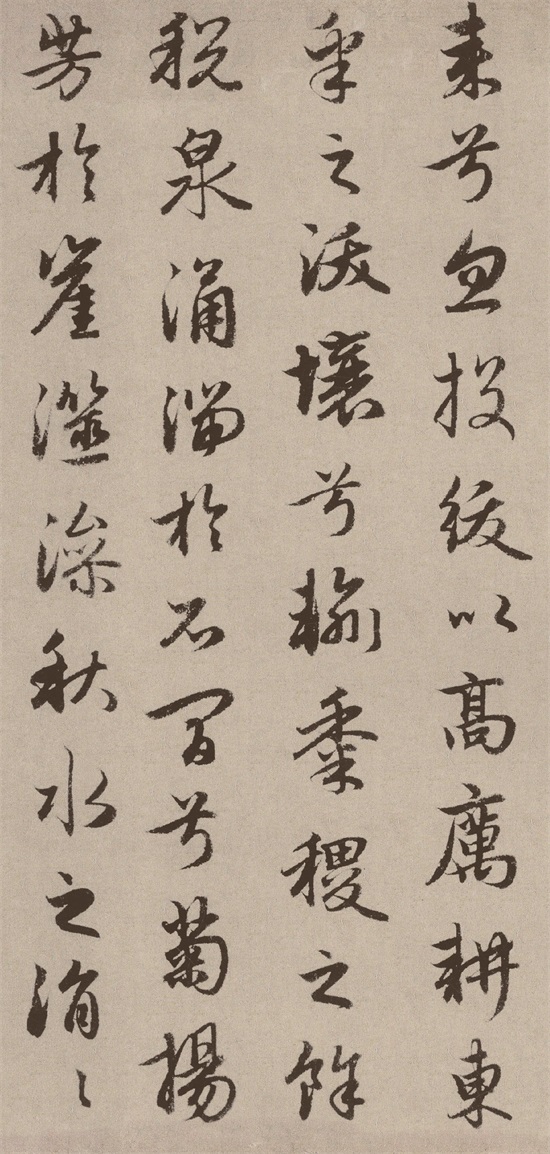 來兮忽投紱以高厲耕東
皋之沃壤兮輸黍稷之餘
税泉涌湍於石間兮菊揚
芳於崖澨澡秋水之涓〻